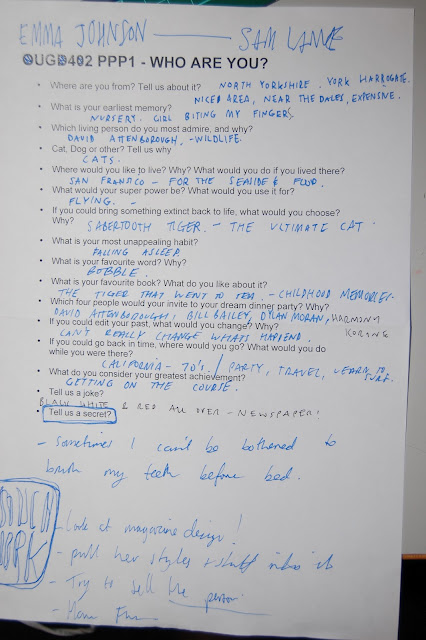 EMMA JOHNSON — SAM LANE
OUGD402 PPP1 - WHO ARE YOU?
• Where are you from? Tell us about it? NORTH YORKSHIRE. YORK HARROGATE.
NICED AREA, NEAR THE DALES, EXPENSIVE.
• What is your earliest memory?
NURSERY. GIRL BITING MY FINGERS
• Which living person do you most admire, and why?
DAVID ATTENBOROUGH, - WILDLIFE.
• Cat, Dog or other? Tell us why
CATS.
• Where would you like to live? Why? What would you do if you lived there?
SAN FRANSICO - FOR THE SEASIDE & FOOD.
• What would your super power be? What would you use it for?
FLYING. -
• If you could bring something extinct back to life, what would you choose?
Why? SABERTOOTH TIGER. - THE ULTIMATE CAT.
• What is your most unappealing habit?
FALLING ASLEEP
• What is your favourite word? Why?
BOBBLE.
• What is your favourite book? What do you like about it?
THE TIGER THAT WENT TO TEA. - CHILDHOOD MEMORIES.
• Which four people would you invite to your dream dinner party? Why?
DAVID ATTENBOROUGH, BILL BAILEY, DYLAN MORAN, HARMONY
KORINE
• If you could edit your past, what would you change? Why?
CAN'T REALLY CHANGE WHATS HAPPEND.
• If you could go back in time, where would you go? What would you do
while you were there?
CALIFORNIA - 70'S / PARTY, TRAVEL, LEARN TO
SURF.
• What do you consider your greatest achievement?
GETTING ON THE COURSE.
• Tell us a joke?
BLACK WHITE & RED ALL OVER - NEWSPAPER!
• Tell us a secret?
- Sometimes I can't be bothered to
brush my teeth before bed.
- Look at magazine design!
- pull her styles + stuff
- Try to sell the person.